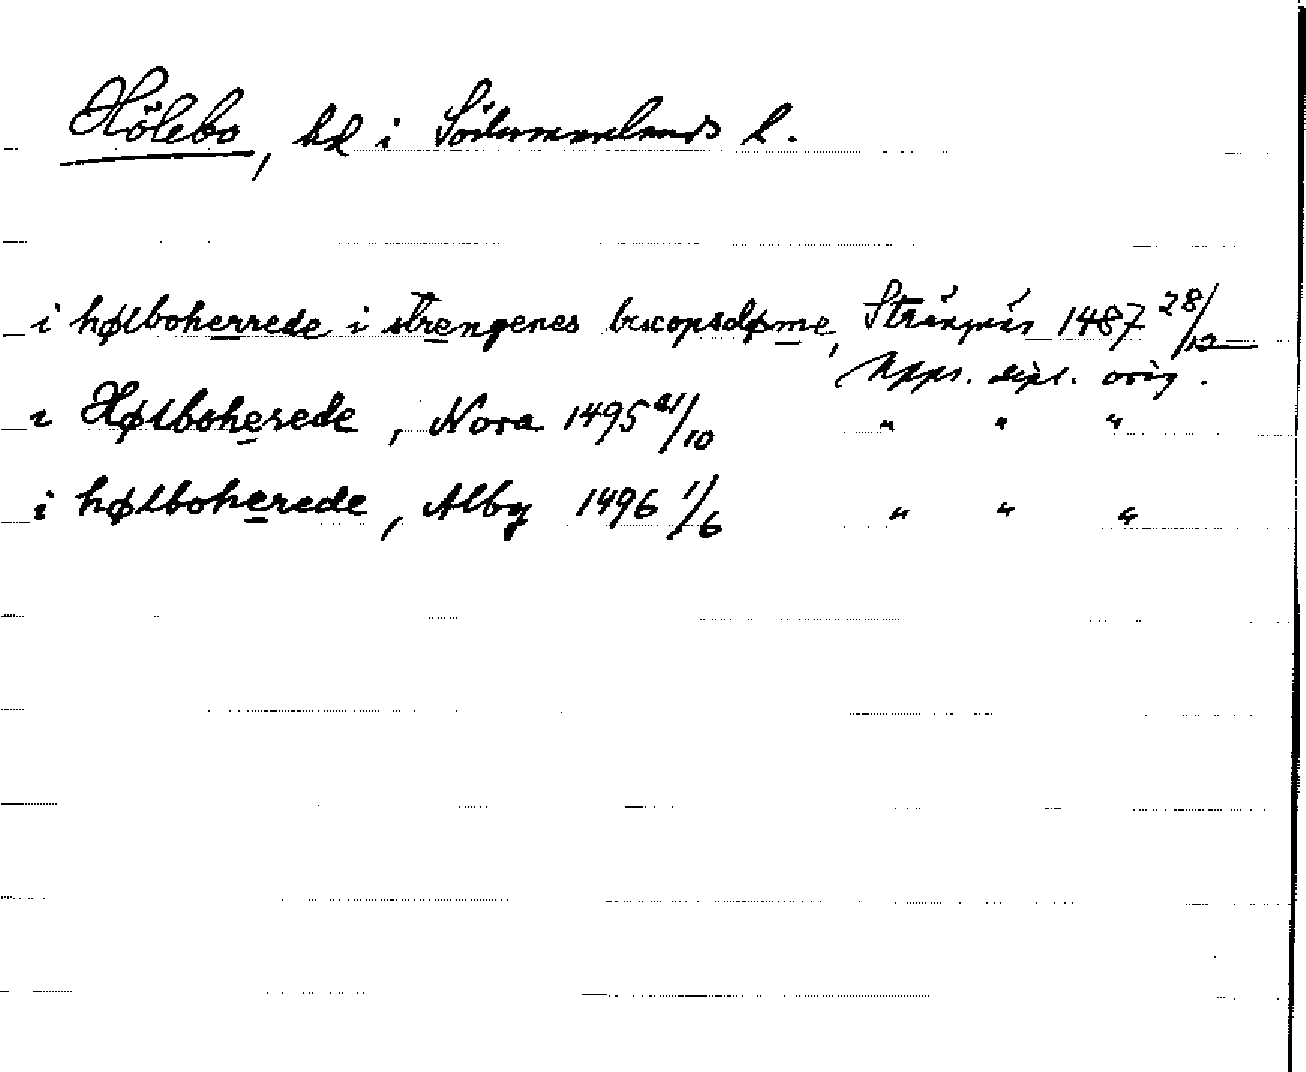 Hölebo, hd i Södermanlands l.
i hølboherrede i strengenes biscopsdøme, Strängnäs 1487 28/12
Upps. dipl. orig.
i Hølboherede, Nora 1495 21/10 " " "
i hølboherede, Alby 1496 1/6 " " "